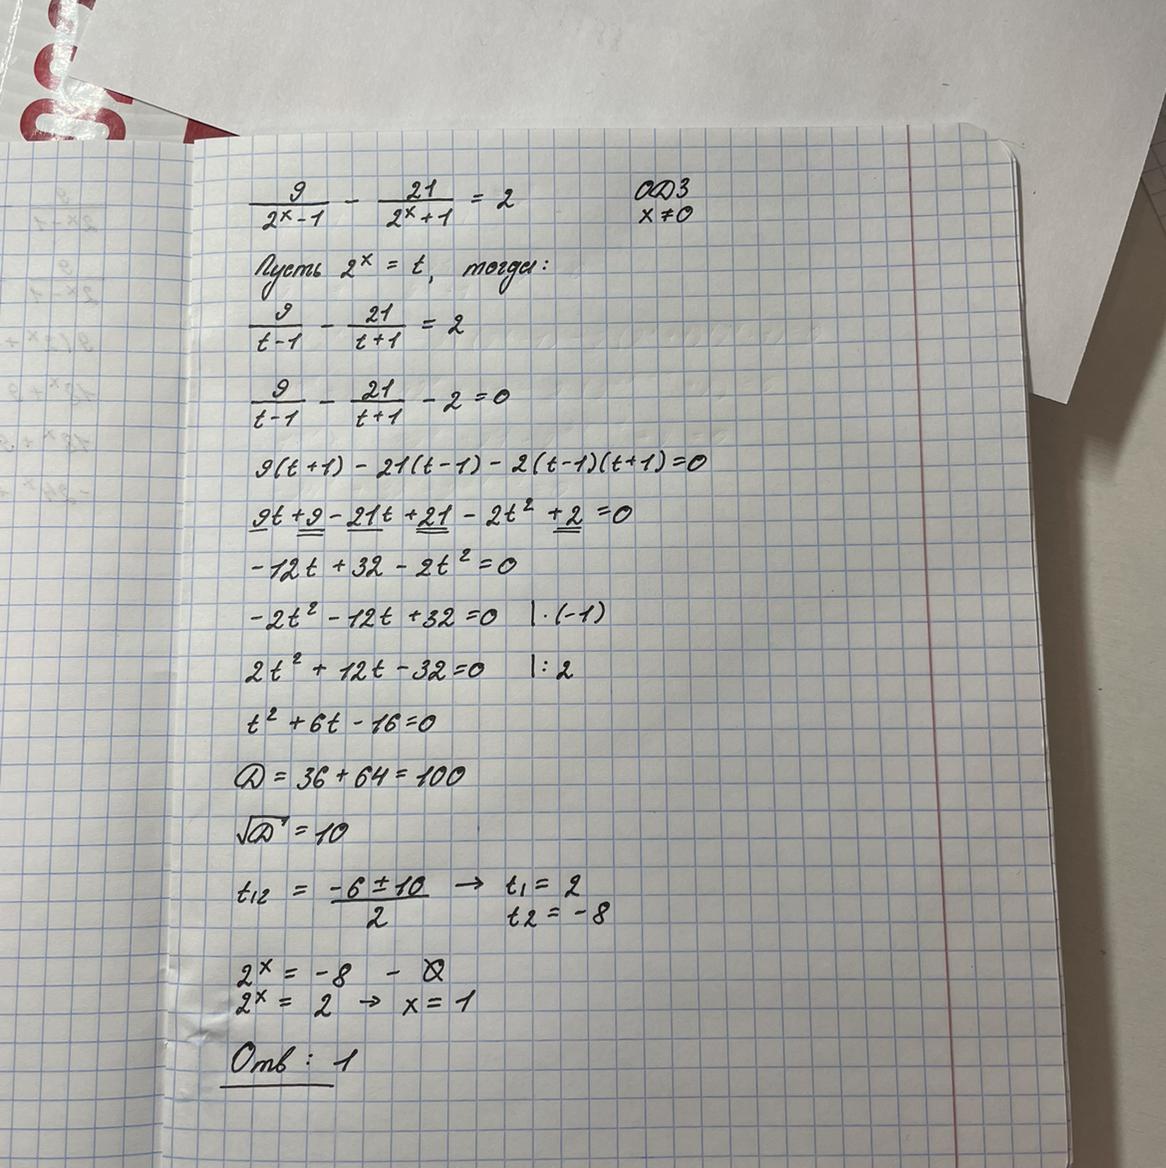 9/(2^x-1) - 21/(2^x+1) = 2
ОДЗ
x≠0
Пусть 2^x = t, тогда:
9/(t-1) - 21/(t+1) = 2
9/(t-1) - 21/(t+1) - 2 = 0
9(t+1) - 21(t-1) - 2(t-1)(t+1) = 0
9t + 9 - 21t + 21 - 2t² + 2 = 0
-12t + 32 - 2t² = 0
-2t² - 12t + 32 = 0 | · (-1)
2t² + 12t - 32 = 0 | : 2
t² + 6t - 16 = 0
D = 36 + 64 = 100
√D = 10
t12 = (-6 ± 10)/2 → t1 = 2
t2 = -8
2^x = -8 - ∅
2^x = 2 → x = 1
Отв : 1